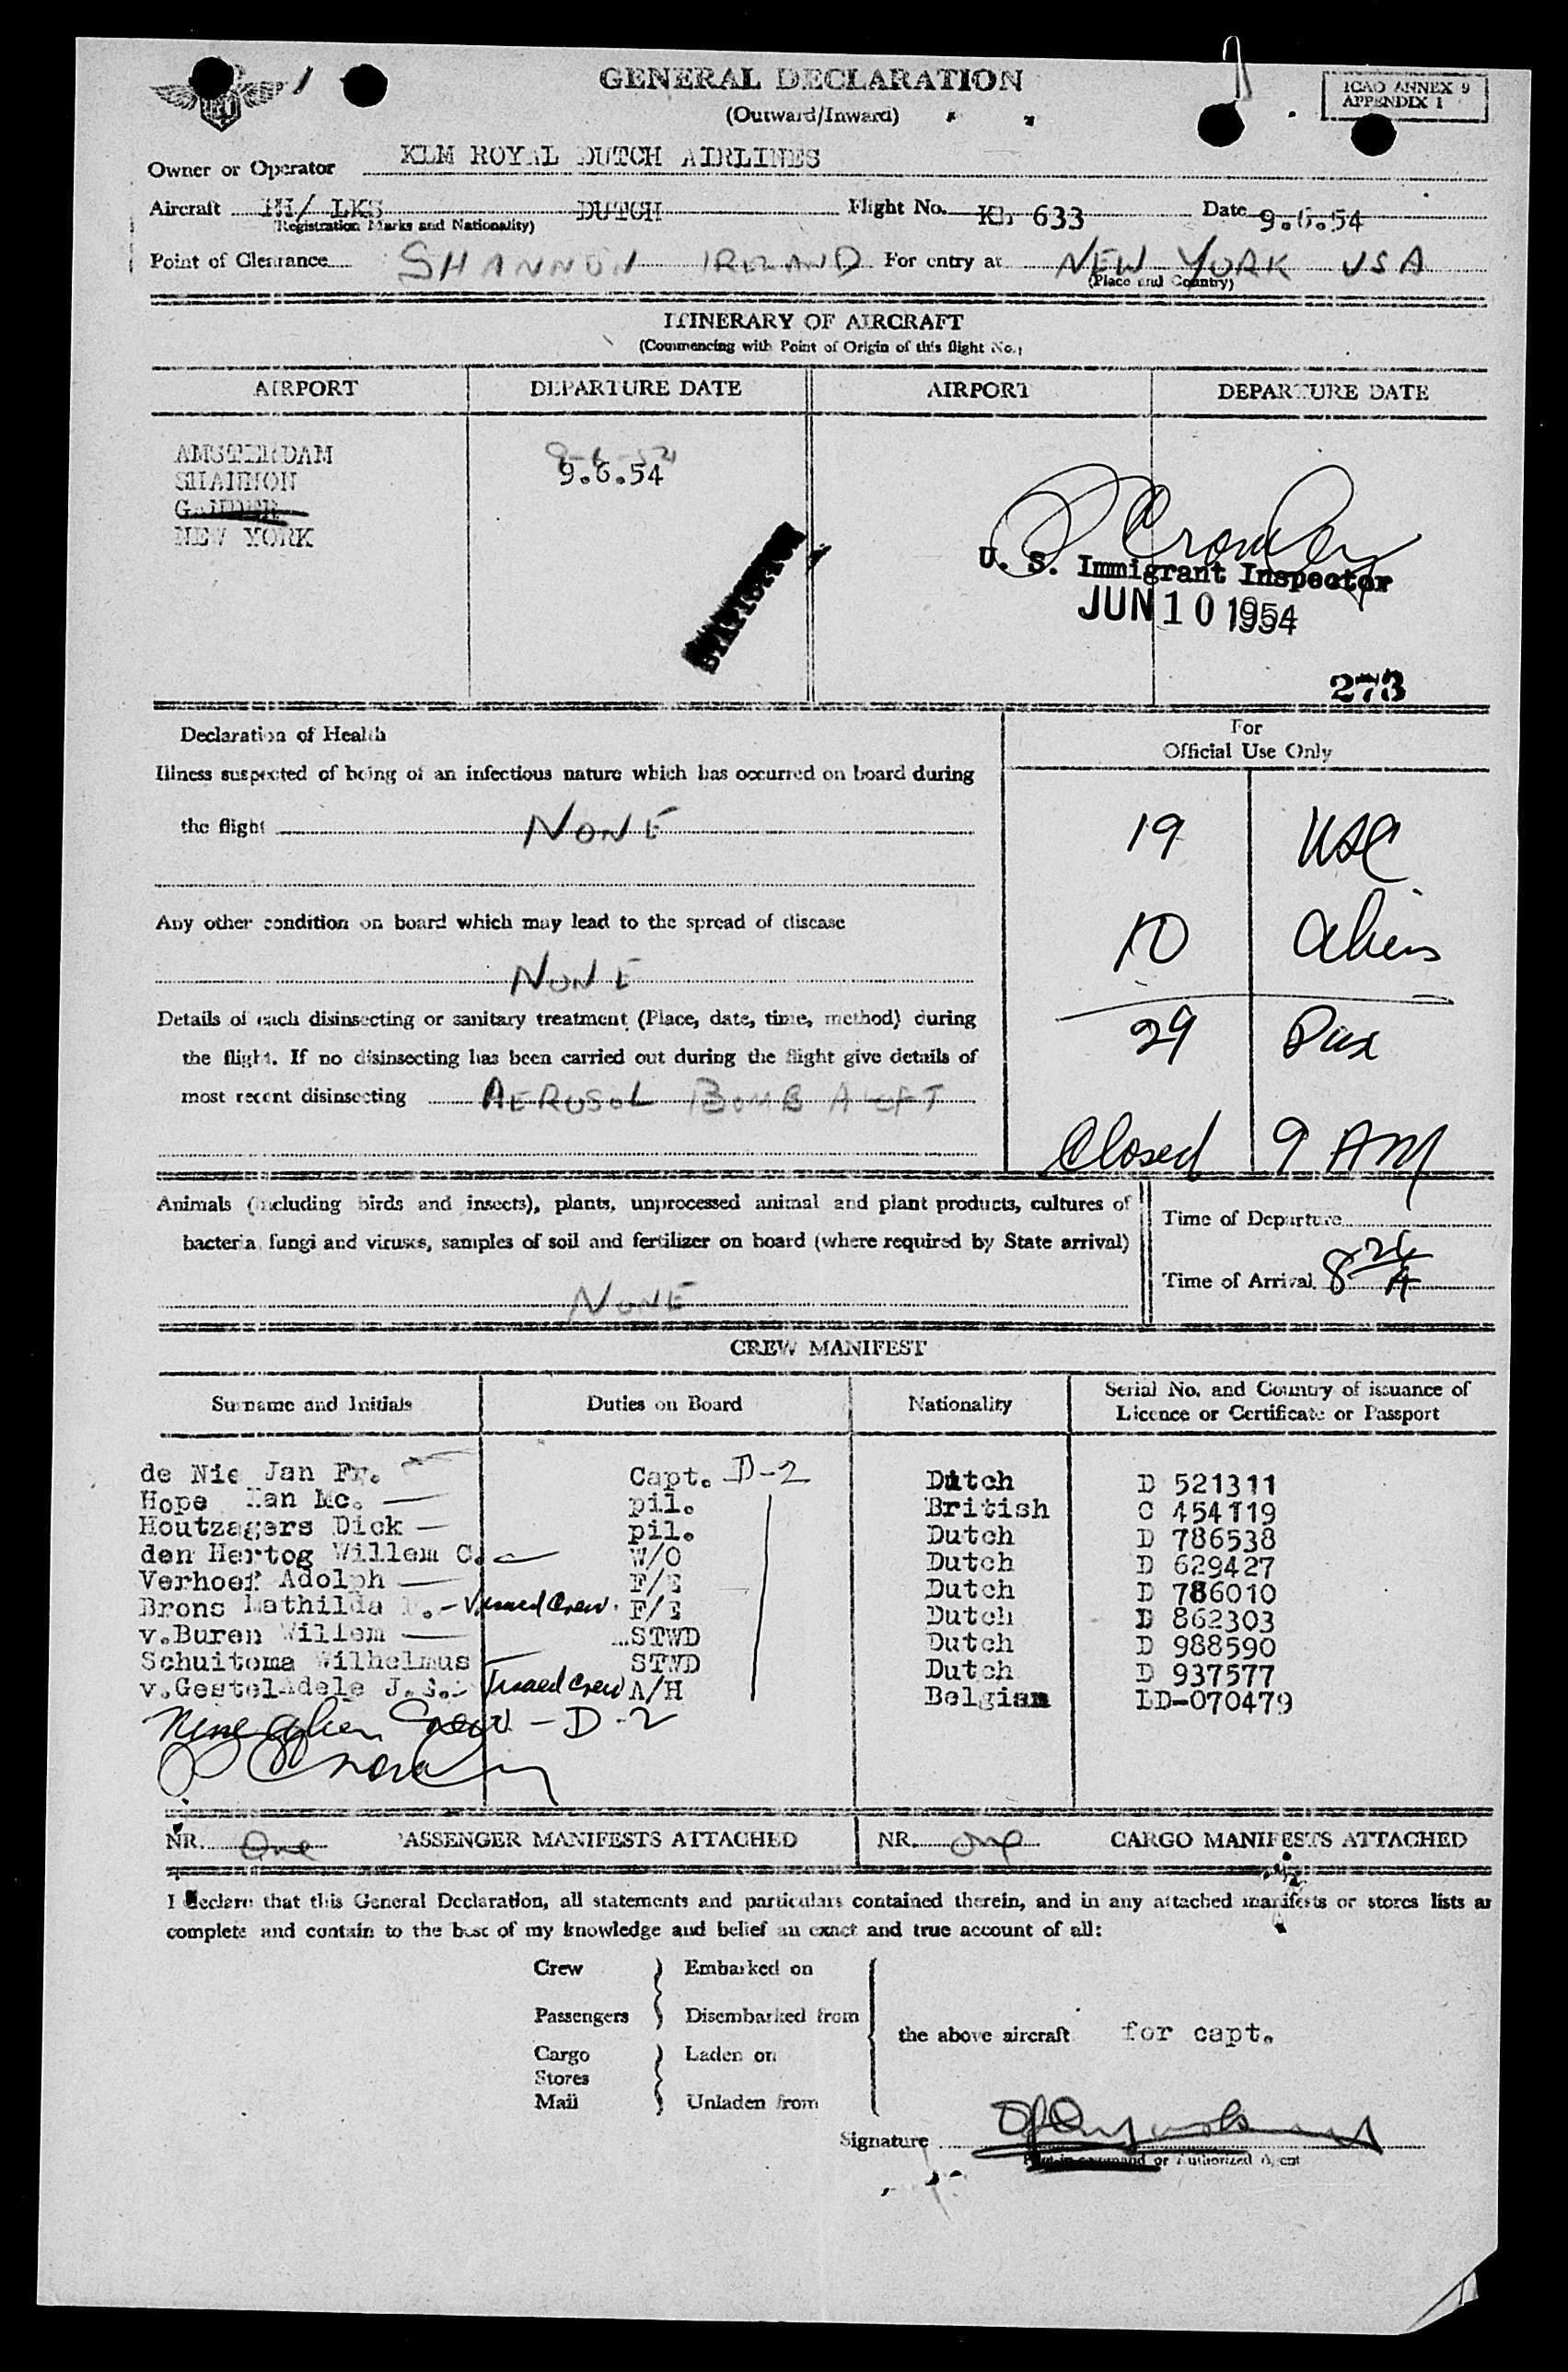 GENERAL DECLARATION
(Outward/Inward)
ICAO ANNEX 9
APPENDIX 1
Owner or Operator KLM ROYAL DUTCH AIRLINES
Aircraft PH/ LKS DUTCH Flight No. KL 633 Date 9.6.54
(Registration Marks and Nationality)
Point of Clearance SHANNON IRELAND For entry at NEW YORK USA
(Place and Country)
ITINERARY OF AIRCRAFT
(Commencing with Point of Origin of this flight No.)
AIRPORT DEPARTURE DATE AIRPORT DEPARTURE DATE
AMSTERDAM
SHANNON 9.6.54
GANDER
NEW YORK
U. S. Immigrant Inspector
JUN 10 1954
273
Declaration of Health
For
Official Use Only
Illness suspected of being of an infectious nature which has occurred on board during
the flight NONE
19 USC
Any other condition on board which may lead to the spread of disease
10 aliens
NONE
Details of each disinsecting or sanitary treatment (Place, date, time, method) during
29 Pax
the flight. If no disinsecting has been carried out during the flight give details of
most recent disinsecting AEROSOL BOMB ALOFT
Closed 9 AM
Animals (including birds and insects), plants, unprocessed animal and plant products, cultures of
bacteria, fungi and viruses, samples of soil and fertilizer on board (where required by State arrival)
NONE
Time of Departure
Time of Arrival 8 26 A
CREW MANIFEST
Surname and Initials Duties on Board Nationality Serial No. and Country of issuance of
Licence or Certificate or Passport
de Nie Jan Fr. Capt. D-2 Dutch D 521311
Hope Ian Mc. pil. British C 454119
Houtzagers Dick pil. Dutch D 786538
den Hertog Willem C. W/O Dutch D 629427
Verhoef Adolph F/E Dutch D 786010
Brons Mathilda - Visaed Crew. F/E Dutch D 862303
v.Buren Willem STWD Dutch D 988590
Schuitema Wilhelmus STWD Dutch D 937577
v.Gestel Adele J. Visaed Crew A/H Belgian LD-070479
Nine alien Crew - D-2
NR. One PASSENGER MANIFESTS ATTACHED NR. one CARGO MANIFESTS ATTACHED
I declare that this General Declaration, all statements and particulars contained therein, and in any attached manifests or stores lists ar
complete and contain to the best of my knowledge and belief an exact and true account of all:
Crew Embarked on
Passengers Disembarked from
the above aircraft for capt.
Cargo Laden on
Stores
Mail Unladen from
Signature
Pilot-in-command or Authorized Agent